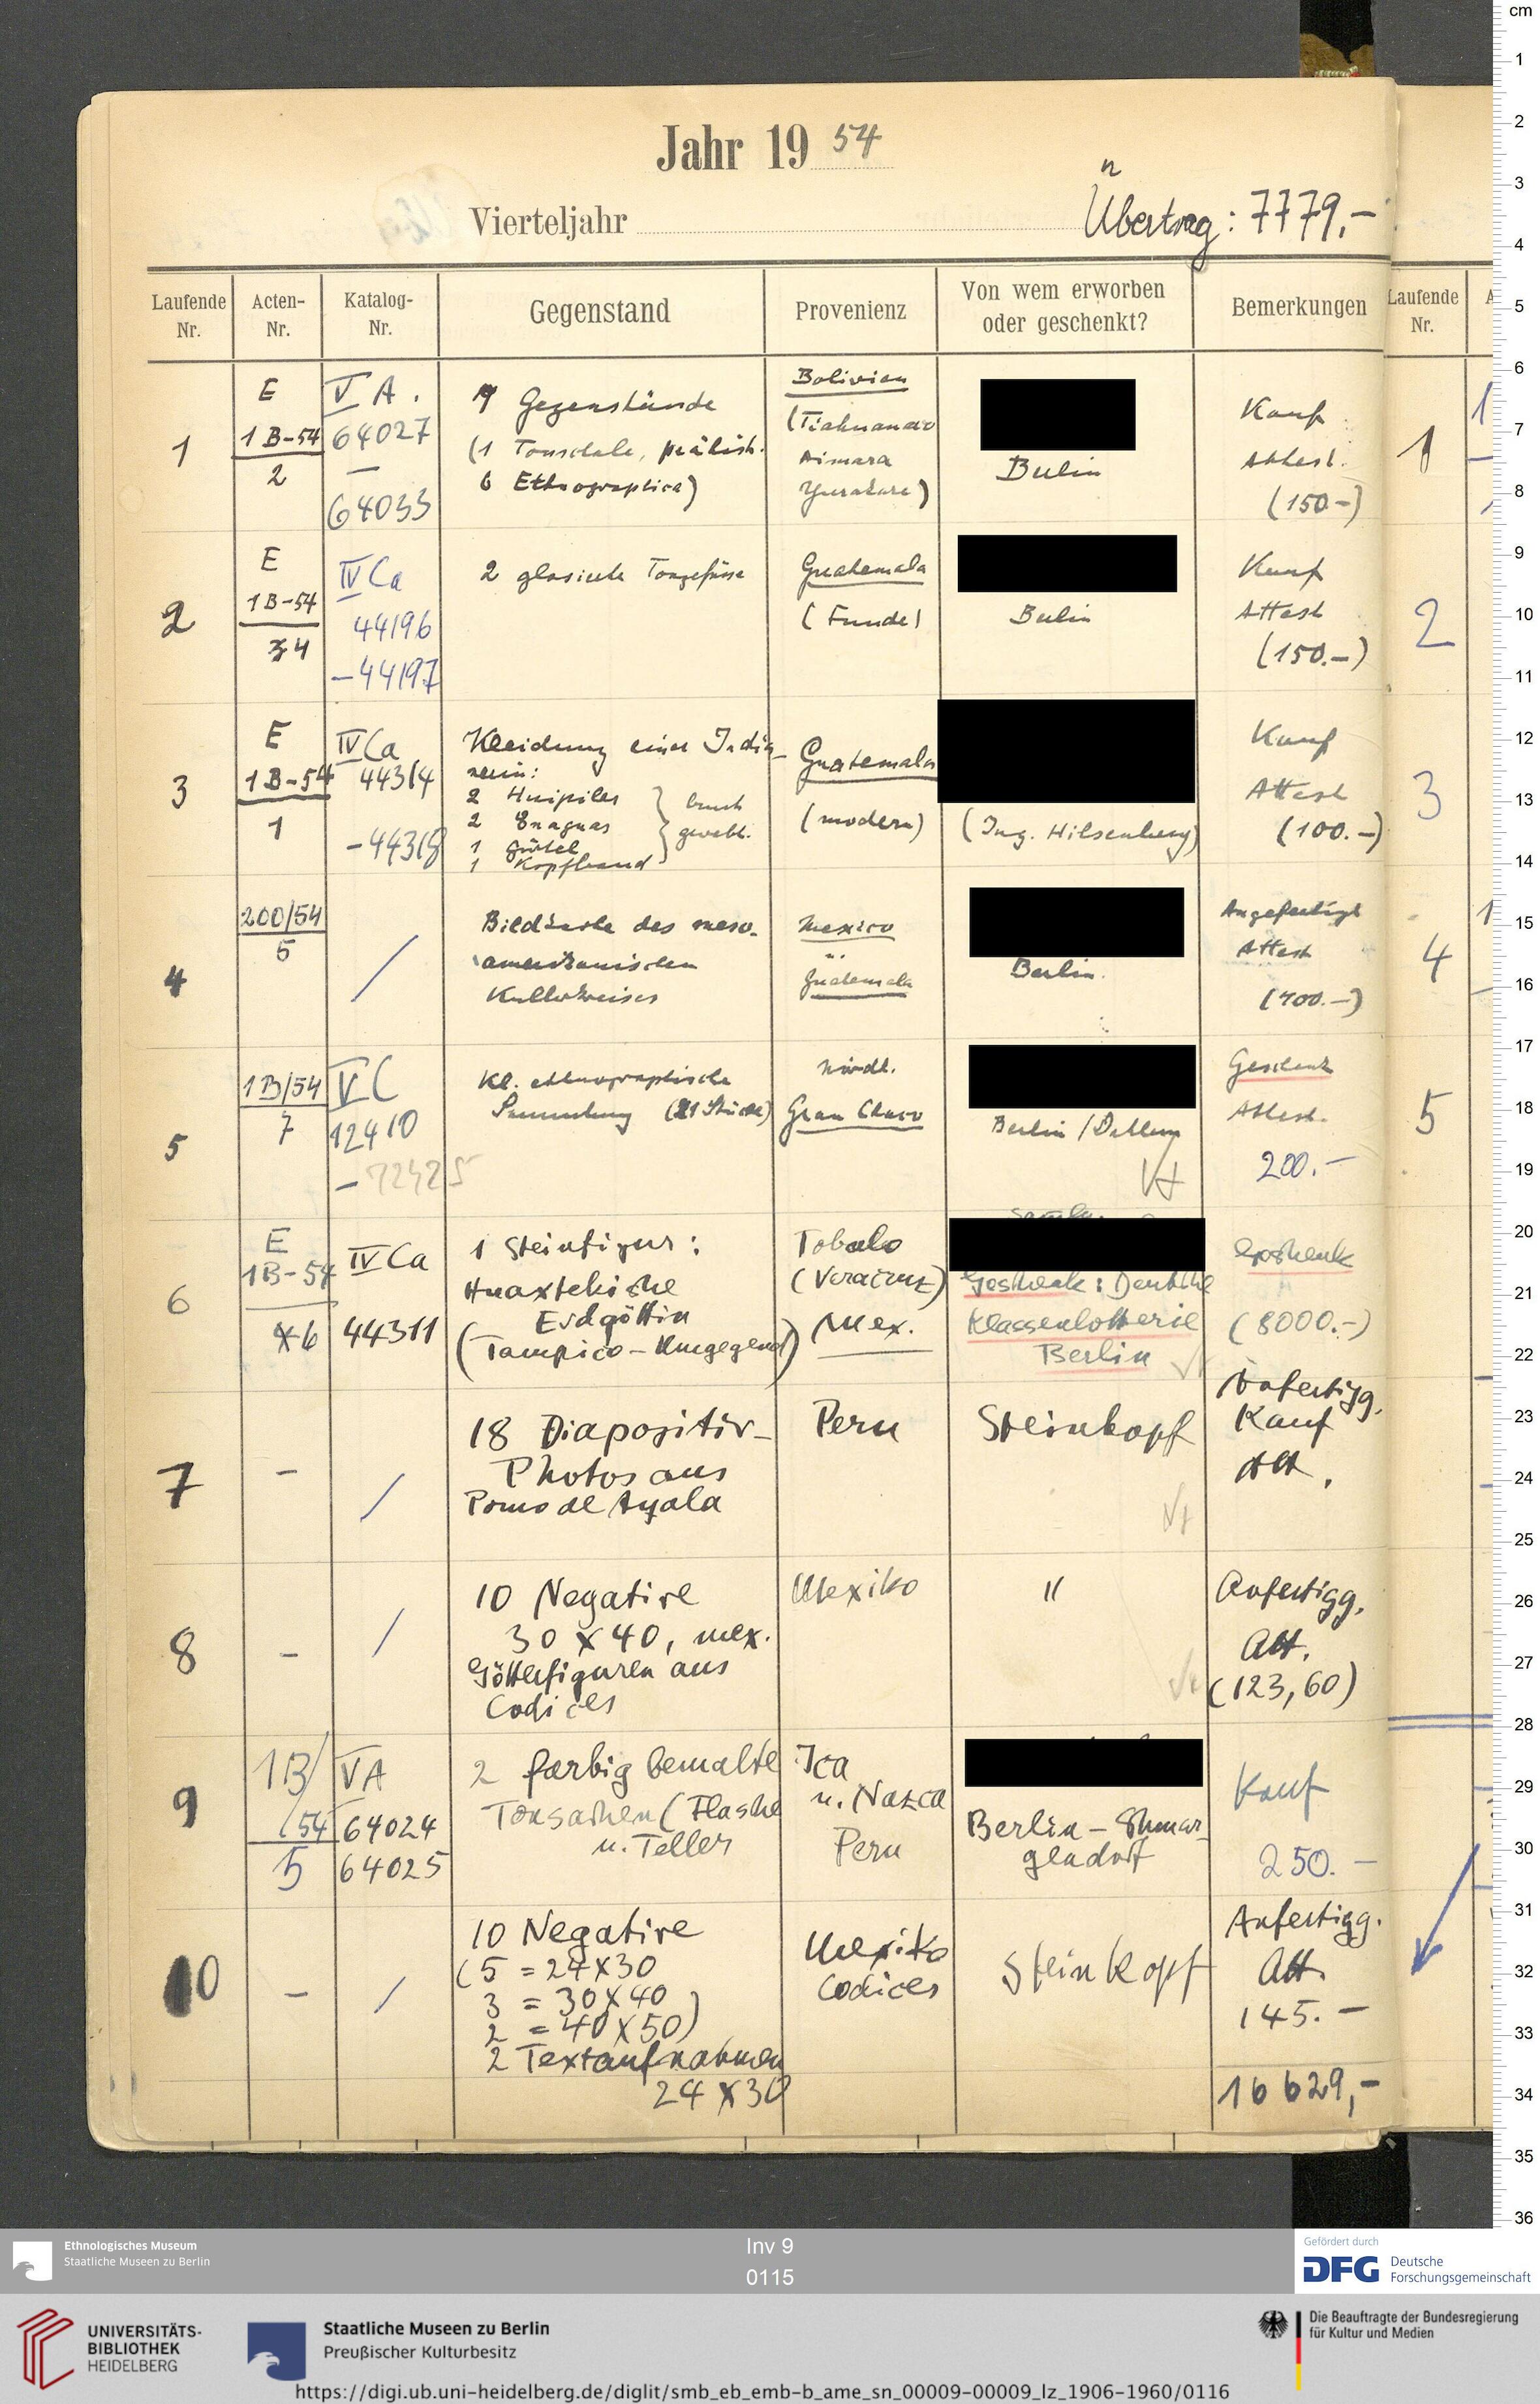 Jahr 19 54
Vierteljahr
Übertrag: 7779,-
Laufende Nr.
Acten-Nr.
Katalog-Nr.
Gegenstand
Provenienz
Von wem erworben oder geschenkt?
Bemerkungen
Laufende Nr.
1
E
1B-54
2
V A.
64027
—
64033
7 Gegenstände
(1 Tonschale, prähist.
6 Ethnographica)
Bolivien
(Tiahuanaco
Aimara
Yurakare)
Berlin
Kauf
Attest.
(150-)
1
2
E
1B-54
34
IV Ca
44196
-44197
2 glasierte Tongefässe
Guatemala
(Funde)
Berlin
Kauf
Attest
(150.-)
2
3
E
1B-54
1
IV Ca
44314
-44318
Kleidung einer India-
nerin:
2 Huipiles
2 Enaguas
1 Gürtel
1 Kopfband
bunt
gewebt.
Guatemala
(modern)
(Ing. Hilsenberg)
Kauf
Attest
(100.-)
3
4
200/54
5
/
Bildkarte des meso-
amerikanischen
Kulturkreises
Mexico
u.
Guatemala
Berlin.
Angefertigt
Attest
(400.-)
4
5
1B/54
7
V C
12410
- 12425
Kl. ethnographische
Sammlung (21 Stücke)
nördl.
Gran Chaco
Berlin/Dahlem
Geschenk
Attest.
200.-
5
6
E
1B-54
6
IV Ca
44311
1 Steinfigur:
Huaxtekische
Erdgöttin
(Tampico-Umgegend)
(Veracruz)
Mex.
Geschenk: Deutsche
Klassenlotterie
Berlin
Geschenk
(8000.-)
7
-
/
18 Diapositiv-
Photos aus
Poma de Ayala
Peru
Steinkopf
Anfertigg.
Kauf
Att.
8
-
/
10 Negative
30 x 40, mex.
Götterfiguren aus
Codices
Mexiko
"
Anfertigg.
Att.
(123,60)
9
1B/
/54
5
V A
64024
64025
2 farbig bemalte
Tonsachen (Flasche
u. Teller
Ica
u. Nazca
Peru
Berlin-Schmar-
gendorf
Kauf
250.-
10
-
/
10 Negative
(5 = 24x30
3 = 30x40
2 = 40x50)
2 Textaufnahmen
24 x 30
Mexiko
Codices
Steinkopf
Anfertigg.
Att.
145.-
16629,-
cm
1
2
3
4
5
6
7
8
9
10
11
12
13
14
15
16
17
18
19
20
21
22
23
24
25
26
27
28
29
30
31
32
33
34
35
36
Ethnologisches Museum
Staatliche Museen zu Berlin
Inv 9
0115
Gefördert durch
DFG Deutsche
Forschungsgemeinschaft
UNIVERSITÄTS-
BIBLIOTHEK
HEIDELBERG
Staatliche Museen zu Berlin
Preußischer Kulturbesitz
Die Beauftragte der Bundesregierung
für Kultur und Medien
https://digi.ub.uni-heidelberg.de/diglit/smb_eb_emb-b_ame_sn_00009-00009_lz_1906-1960/0116